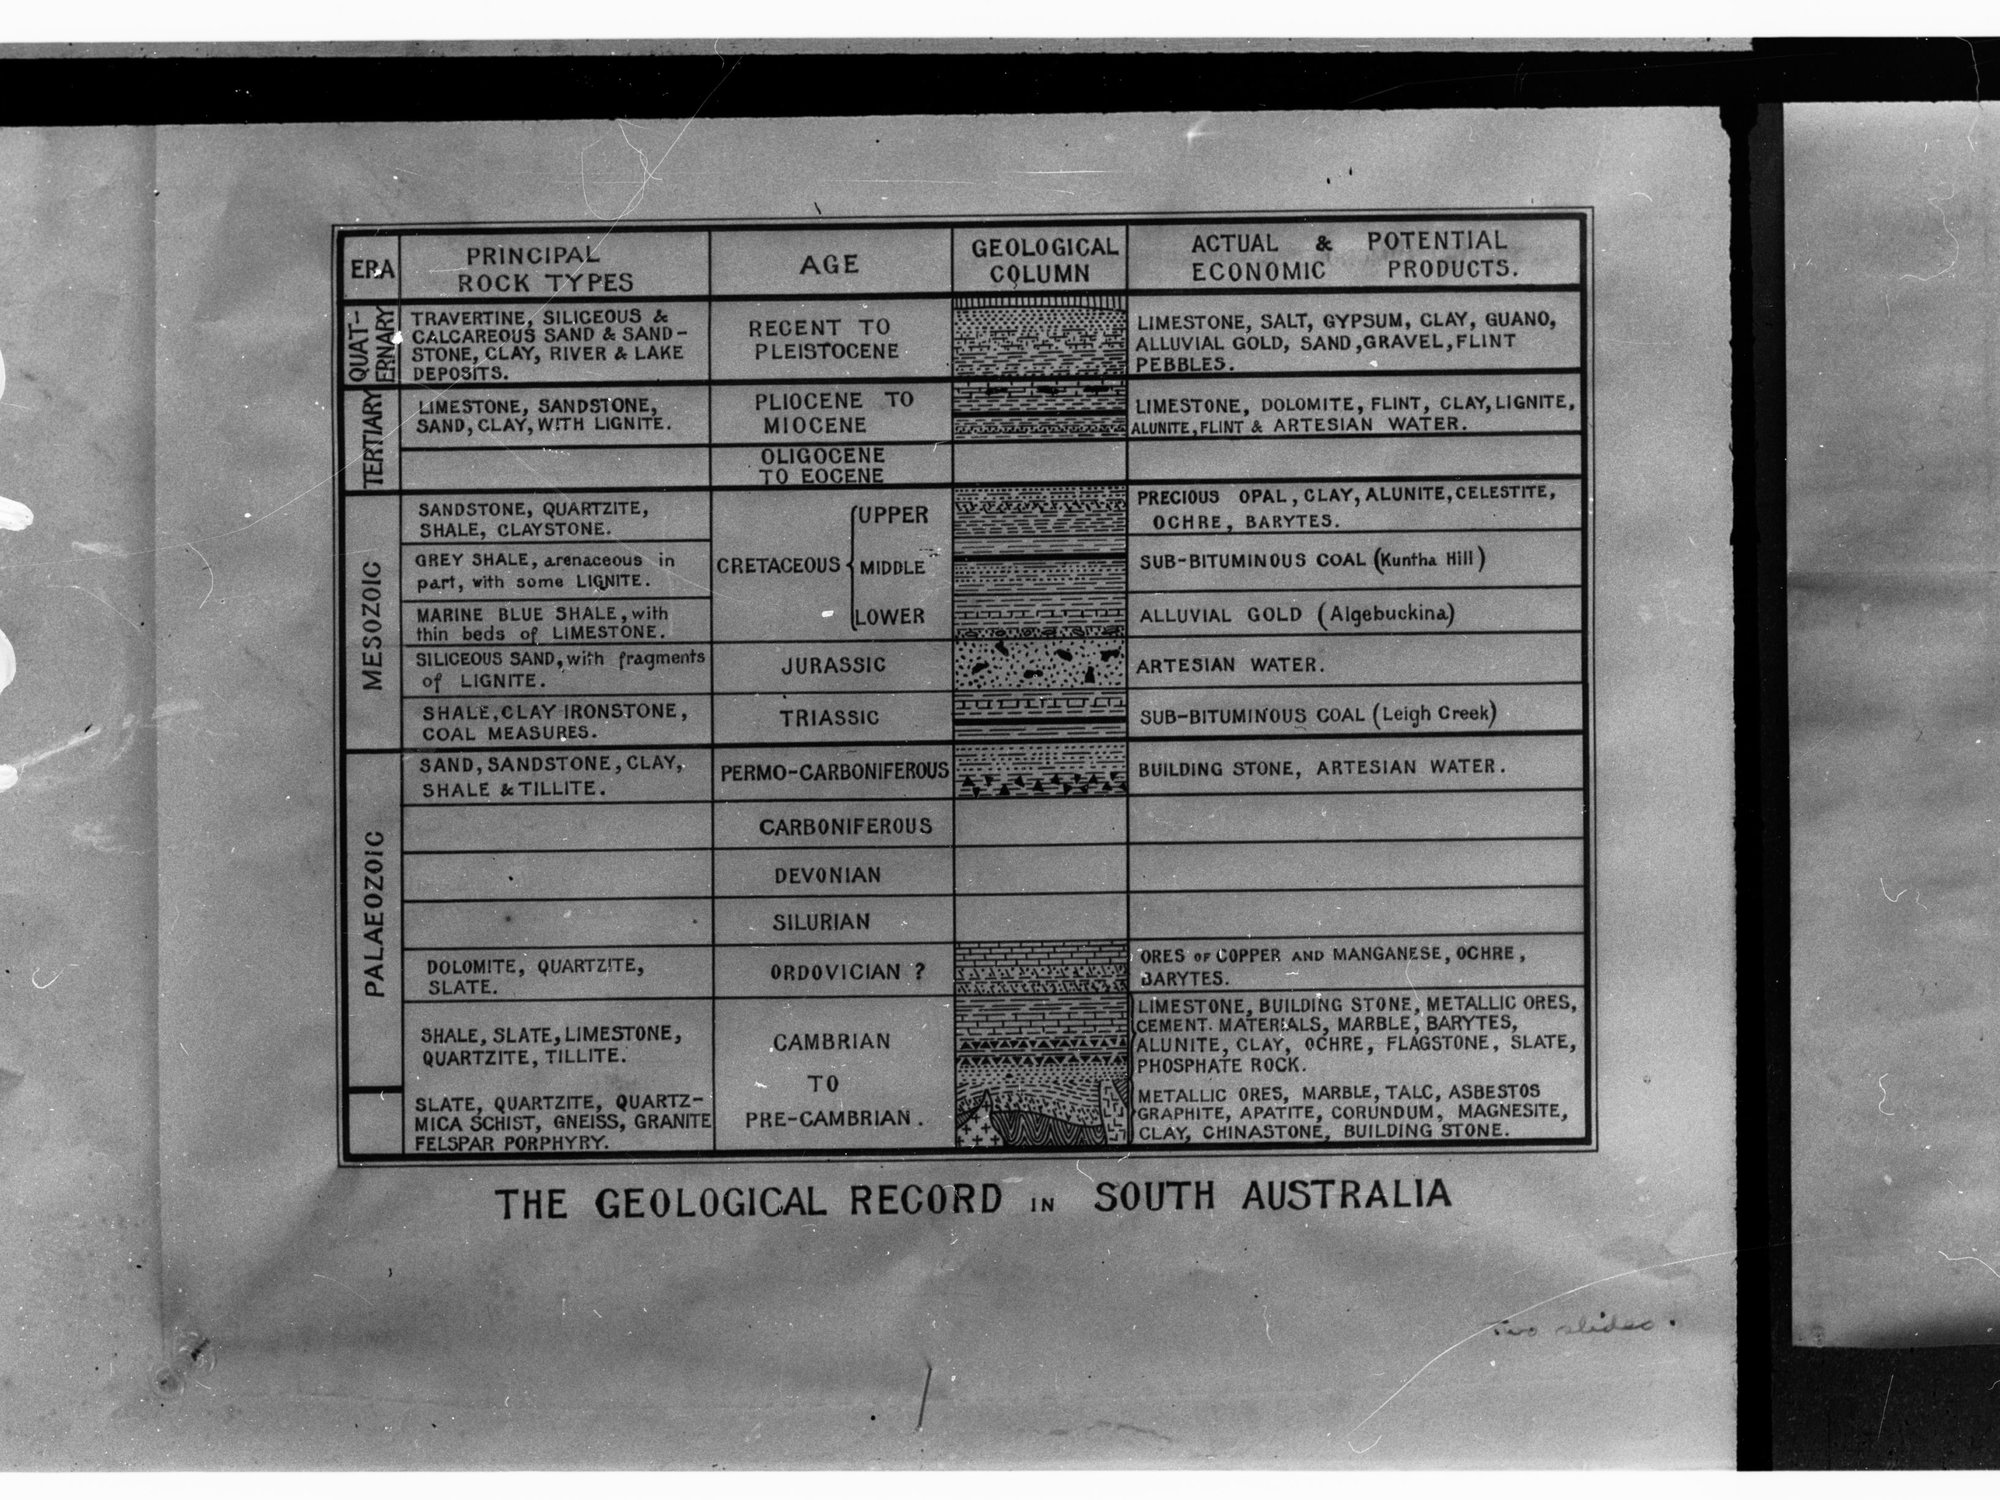 ERA
PRINCIPAL
ROCK TYPES
AGE
GEOLOGICAL
COLUMN
ACTUAL & POTENTIAL
ECONOMIC PRODUCTS.
QUAT-
ERNARY
TRAVERTINE, SILICEOUS &
CALCAREOUS SAND & SAND-
STONE, CLAY, RIVER & LAKE
DEPOSITS.
RECENT TO
PLEISTOCENE
LIMESTONE, SALT, GYPSUM, CLAY, GUANO,
ALLUVIAL GOLD, SAND, GRAVEL, FLINT
PEBBLES.
TERTIARY
LIMESTONE, SANDSTONE,
SAND, CLAY, WITH LIGNITE.
PLIOCENE TO
MIOCENE
LIMESTONE, DOLOMITE, FLINT, CLAY, LIGNITE,
ALUNITE, FLINT & ARTESIAN WATER.
OLIGOCENE
TO EOCENE
MESOZOIC
SANDSTONE, QUARTZITE,
SHALE, CLAYSTONE.
CRETACEOUS
UPPER
PRECIOUS OPAL, CLAY, ALUNITE, CELESTITE,
OCHRE, BARYTES.
GREY SHALE, arenaceous in
part, with some LIGNITE.
MIDDLE
SUB-BITUMINOUS COAL (Kuntha Hill)
MARINE BLUE SHALE, with
thin beds of LIMESTONE.
LOWER
ALLUVIAL GOLD (Algebuckina)
SILICEOUS SAND, with fragments
of LIGNITE.
JURASSIC
ARTESIAN WATER.
SHALE, CLAY IRONSTONE,
COAL MEASURES.
TRIASSIC
SUB-BITUMINOUS COAL (Leigh Creek)
PALAEOZOIC
SAND, SANDSTONE, CLAY,
SHALE & TILLITE.
PERMO-CARBONIFEROUS
BUILDING STONE, ARTESIAN WATER.
CARBONIFEROUS
DEVONIAN
SILURIAN
DOLOMITE, QUARTZITE,
SLATE.
ORDOVICIAN ?
ORES OF COPPER AND MANGANESE, OCHRE,
BARYTES.
SHALE, SLATE, LIMESTONE,
QUARTZITE, TILLITE.
CAMBRIAN
TO
PRE-CAMBRIAN.
LIMESTONE, BUILDING STONE, METALLIC ORES,
CEMENT. MATERIALS, MARBLE, BARYTES,
ALUNITE, CLAY, OCHRE, FLAGSTONE, SLATE,
PHOSPHATE ROCK.
SLATE, QUARTZITE, QUARTZ-
MICA SCHIST, GNEISS, GRANITE
FELSPAR PORPHYRY.
METALLIC ORES, MARBLE, TALC, ASBESTOS
GRAPHITE, APATITE, CORUNDUM, MAGNESITE,
CLAY, CHINASTONE, BUILDING STONE.
THE GEOLOGICAL RECORD IN SOUTH AUSTRALIA
Two slides.